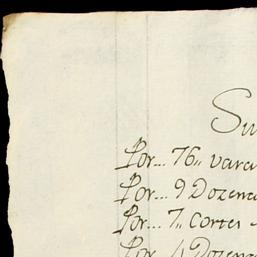 Su
Por... 76,, vara
Por... 9 Dozena
Por... 7,, Cortes
Por... 4 Dozena